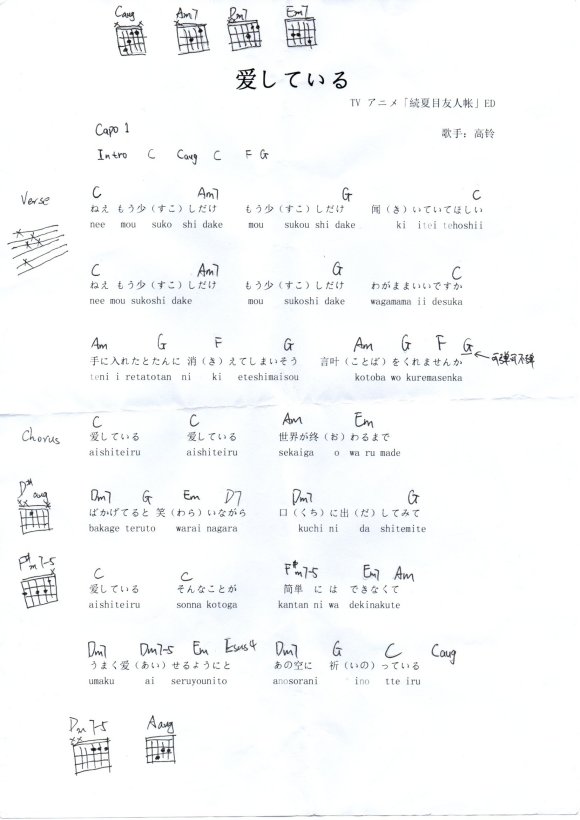 Caug Am7 Dm7 Em7
愛している
TV アニメ「続夏目友人帐」ED
Capo 1
歌手：高铃
Intro C Caug C F G
Verse
C Am7 G C
ねえ もう少（すこ）しだけ もう少（すこ）しだけ 闻（き）いていてほしい
nee mou suko shi dake mou sukou shi dake ki itei tehoshii
C Am7 G C
ねえ もう少（すこ）しだけ もう少（すこ）しだけ わがままいいですか
nee mou sukoshi dake mou sukoshi dake wagamama ii desuka
Am G F G Am G F G ← 可弹可不弹
手に入れたとたんに 消（き）えてしまいそう 言叶（ことば）をくれませんか
teni i retatotan ni ki eteshimaisou kotoba wo kuremasenka
Chorus
C C Am Em
爱している 爱している 世界が终（お）わるまで
aishiteiru aishiteiru sekaiga o wa ru made
D# aug
Dm7 G Em D7 Dm7 G
ばかげてると 笑（わら）いながら 口（くち）に出（だ）してみて
bakage teruto warai nagara kuchi ni da shitemite
F#m7-5
C C F#m7-5 Em7 Am
爱している そんなことが 简単 に は できなくて
aishiteiru sonna kotoga kantan ni wa dekinakute
Dm7 Dm7-5 Em Esus4 Dm7 G C Caug
うまく爱（あい）せるようにと あの空に 祈（いの）っている
umaku ai seruyounito anosorani ino tte iru
Dm7-5 Aaug